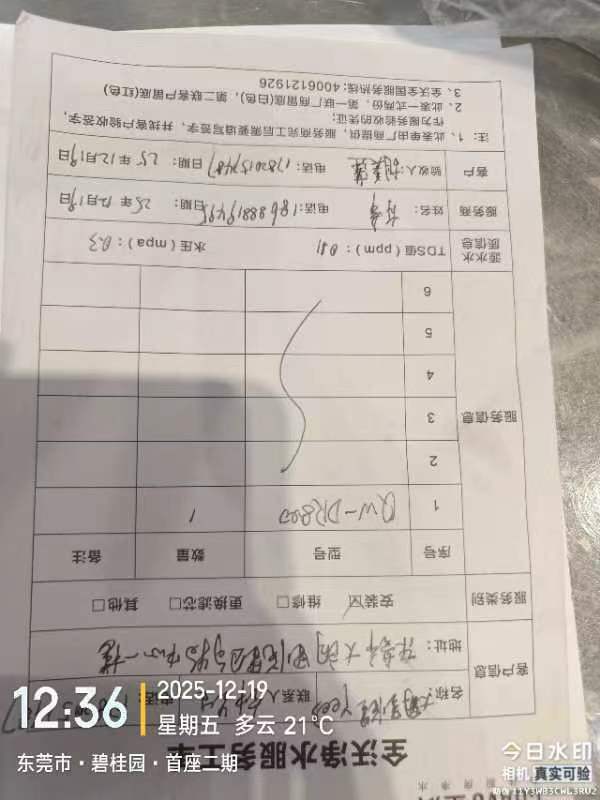 全沃净水服务工单
客户信息
名称:
联系人
电话:
地址:
服务类别
安装☑ 维修□ 更换滤芯□ 其他□
服务信息
序号 型号 数量 备注
1 QW-DR800 1
2
3
4
5
6
源水水质信息
TDS值(ppm): 水压(mpa): 0.3
服务商
姓名: 电话: 18688819495 日期: 25年12月19日
客户
验收人: 电话: 日期: 25年12月19日
注:1、此表单由厂商提供,服务商完工后需要填写签字,并找客户验收签字,
作为服务验收的凭证;
2、此表一式两份,第一联厂商留底(白色),第二联客户留底(红色)
3、全沃全国服务热线:4006121926
12:36
2025-12-19
星期五 多云 21°C
东莞市·碧桂园·首座二期
今日水印
相机 真实可验
防伪 11Y3WB3CWL3RU2